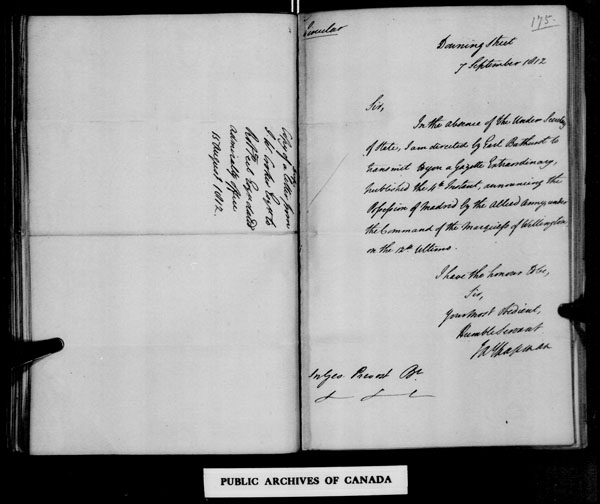 Copy of a Letter from
admiralty office
15 August 1812.
Circular
175.
Downing Street
7 September 1812
Sir,
In the absence of the Under Secretary
of State, I am directed by Earl Bathurst to
transmit to you a Gazette Extraordinary,
published the 4th Instant, announcing the
Possession of Madrid by the Allied Army under
the Command of the Marquess of Wellington
on the 12th Ultimo.
I have the honour &c,
Sir,
Your most Obedient,
Humble Servant
Jas Chapman
Sir Geo. Prevost Bt.
PUBLIC ARCHIVES OF CANADA